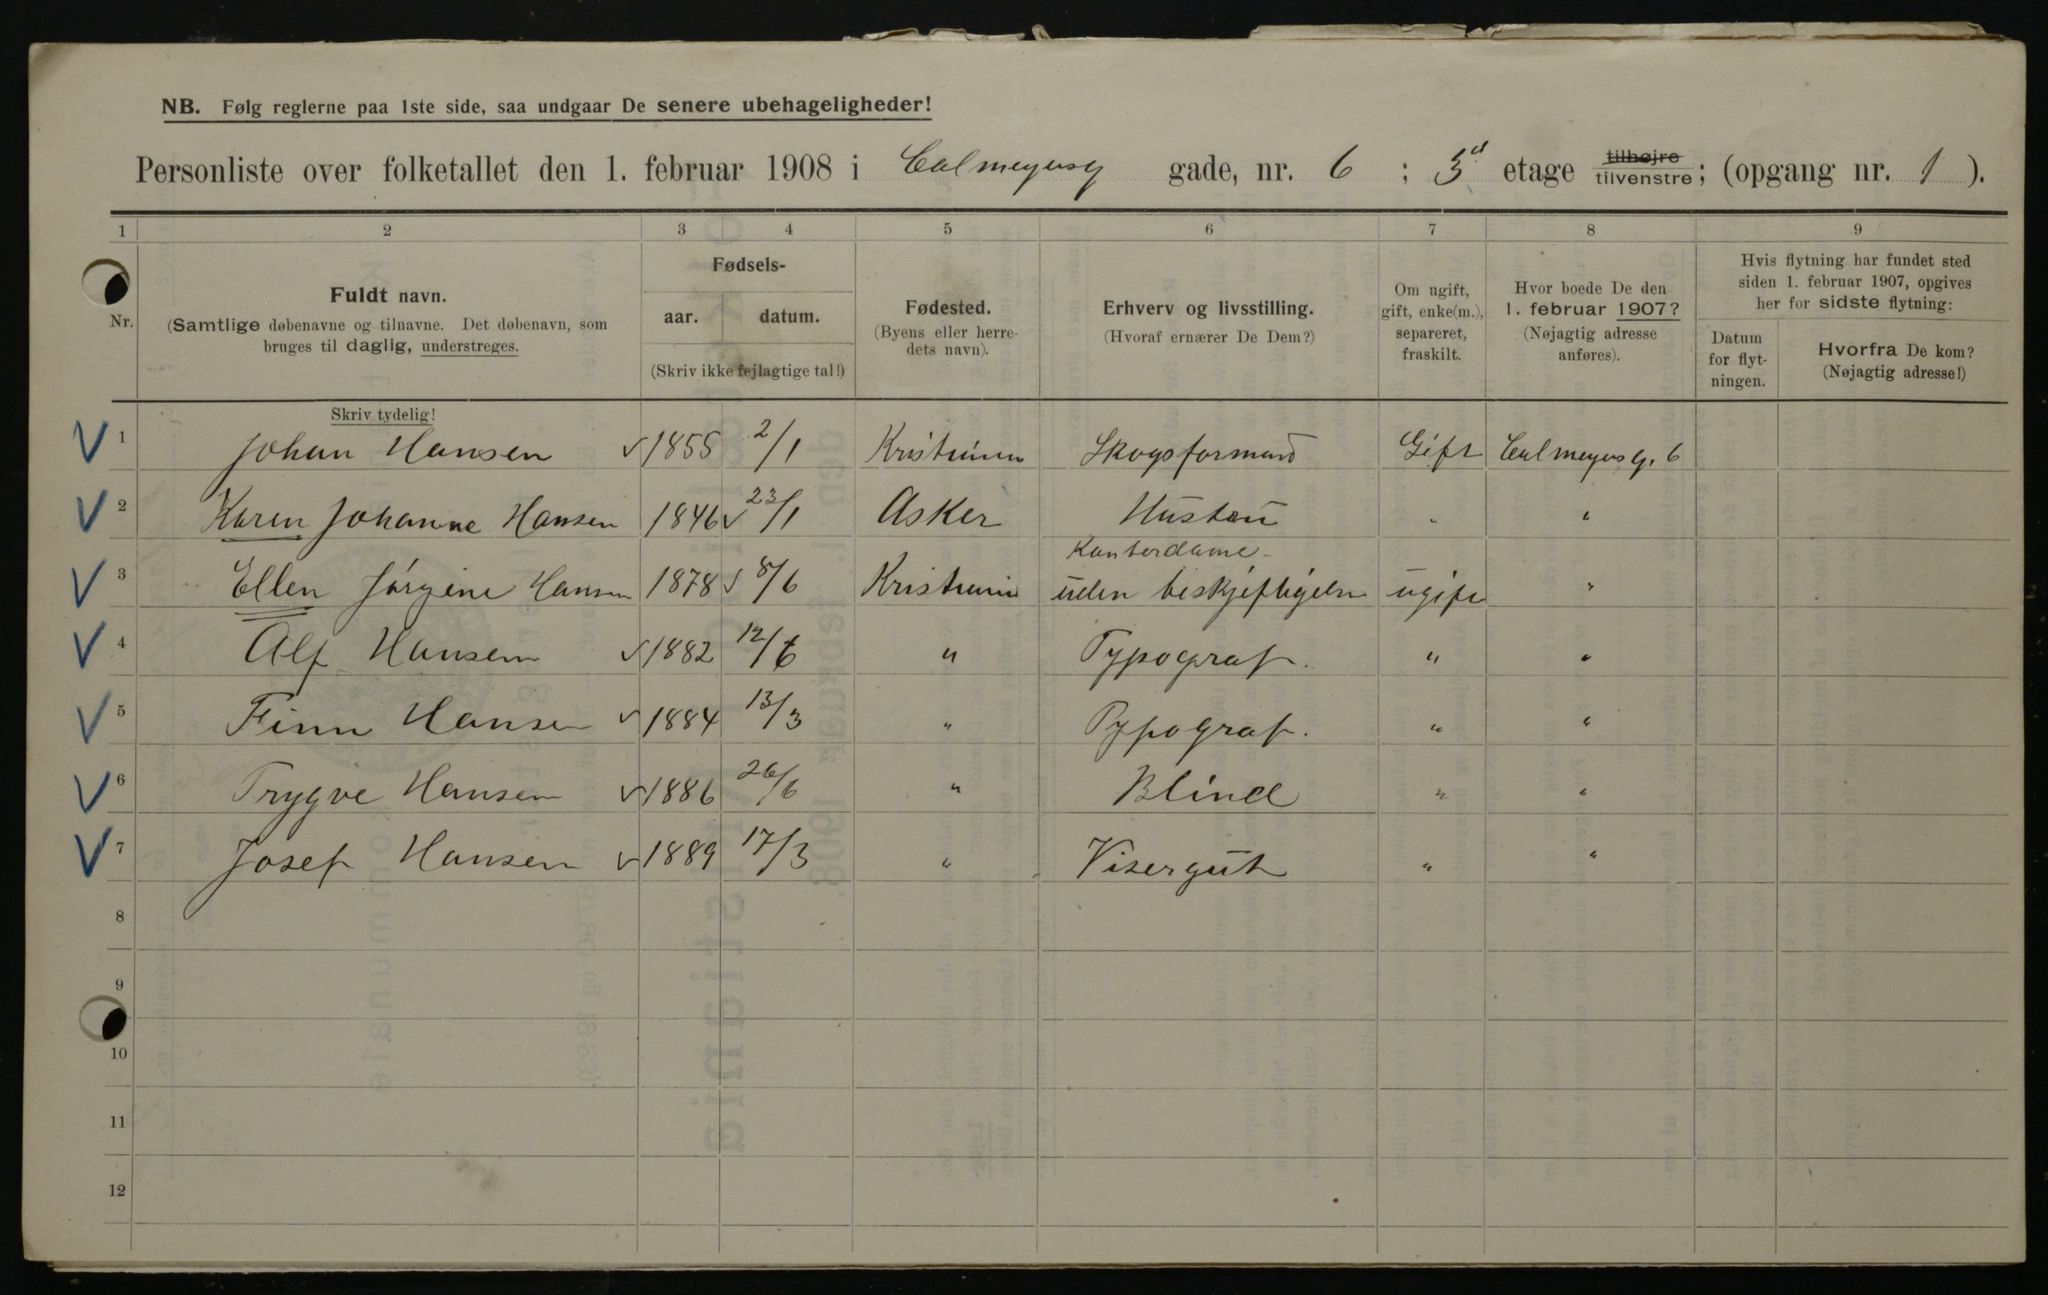 NB. Følg reglerne paa 1ste side, saa undgaar De senere ubehageligheder!
Personliste over folketallet den 1. februar 1908 i Calmeyersg gade, nr. 6 ; 3 etage tilhøjre tilvenstre; (opgang nr. 1 ).
1 2 3 4 5 6 7 8 9
Nr.
Fuldt navn.
(Samtlige døbenavne og tilnavne. Det døbenavn, som
bruges til daglig, understreges.
Skriv tydelig!
Fødsels-
aar. datum.
(Skriv ikke fejlagtige tal!)
Fødested.
(Byens eller herre-
dets navn).
Erhverv og livsstilling.
(Hvoraf ernærer De Dem?)
Om ugift,
gift, enke(m.),
separeret,
fraskilt.
Hvor boede De den
1. februar 1907?
(Nøjagtig adresse
anføres).
Hvis flytning har fundet sted
siden 1. februar 1907, opgives
her for sidste flytning:
Datum
for flyt-
ningen.
Hvorfra De kom?
(Nøjagtig adresse!)
V 1 Johan Hansen ✓ 1855 2/1 Kristiania Skogsformand Gift Calmeyersg. 6
V 2 Karen Johanne Hansen 1846 ✓ 23/1 Asker Hustru " "
Kontordame -
V 3 Ellen Jörgine Hansen 1878 ✓ 8/6 Kristiania uden beskjeftigelse ugift "
V 4 Alf Hansen ✓ 1882 12/6 " Typograf. " "
V 5 Finn Hansen ✓ 1884 13/3 " Typograf. " "
V 6 Trygve Hansen ✓ 1886 26/6 " Blind " "
V 7 Josef Hansen ✓ 1889 17/3 " Visergut " "
8
9
10
11
12